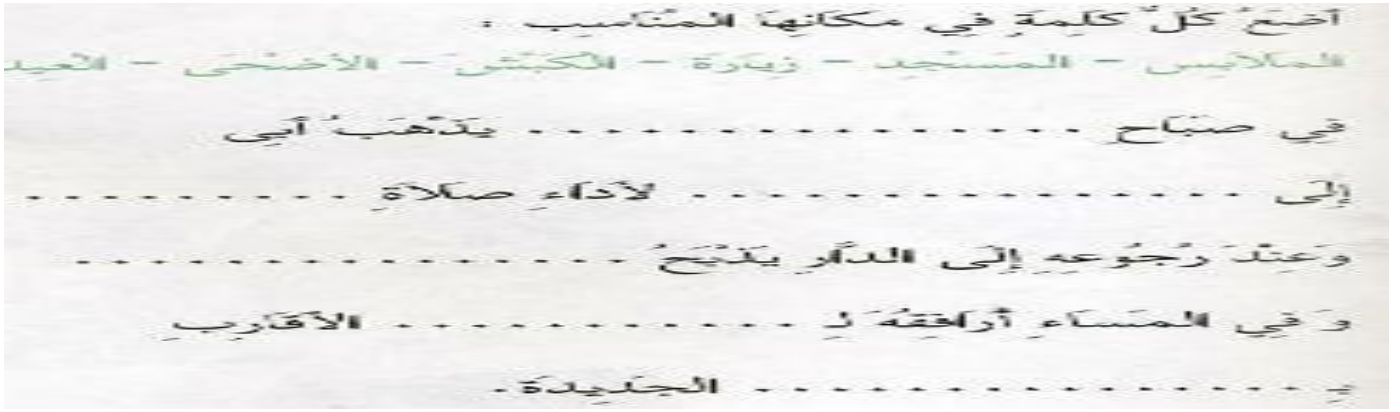 أَضَعُ كُلَّ كَلِمَةٍ فِي مَكَانِهَا الْمُنَاسِبِ :
الملابس - المسْجِد - زيارة - الكَبْش - الأضْحَى - العيد
فِي صَبَاحِ ................ يَذْهَبُ أَبِي
إِلَى ................ لِأَدَاءِ صَلاَةِ ..........
وَعِنْدَ رُجُوعِهِ إِلَى الدَّارِ يَذْبَحُ ................
وَ فِي الْمَسَاءِ أُرَافِقُهُ لِـ ............ الأَقَارِبِ
بِـ ................ الْجَدِيدَةِ .